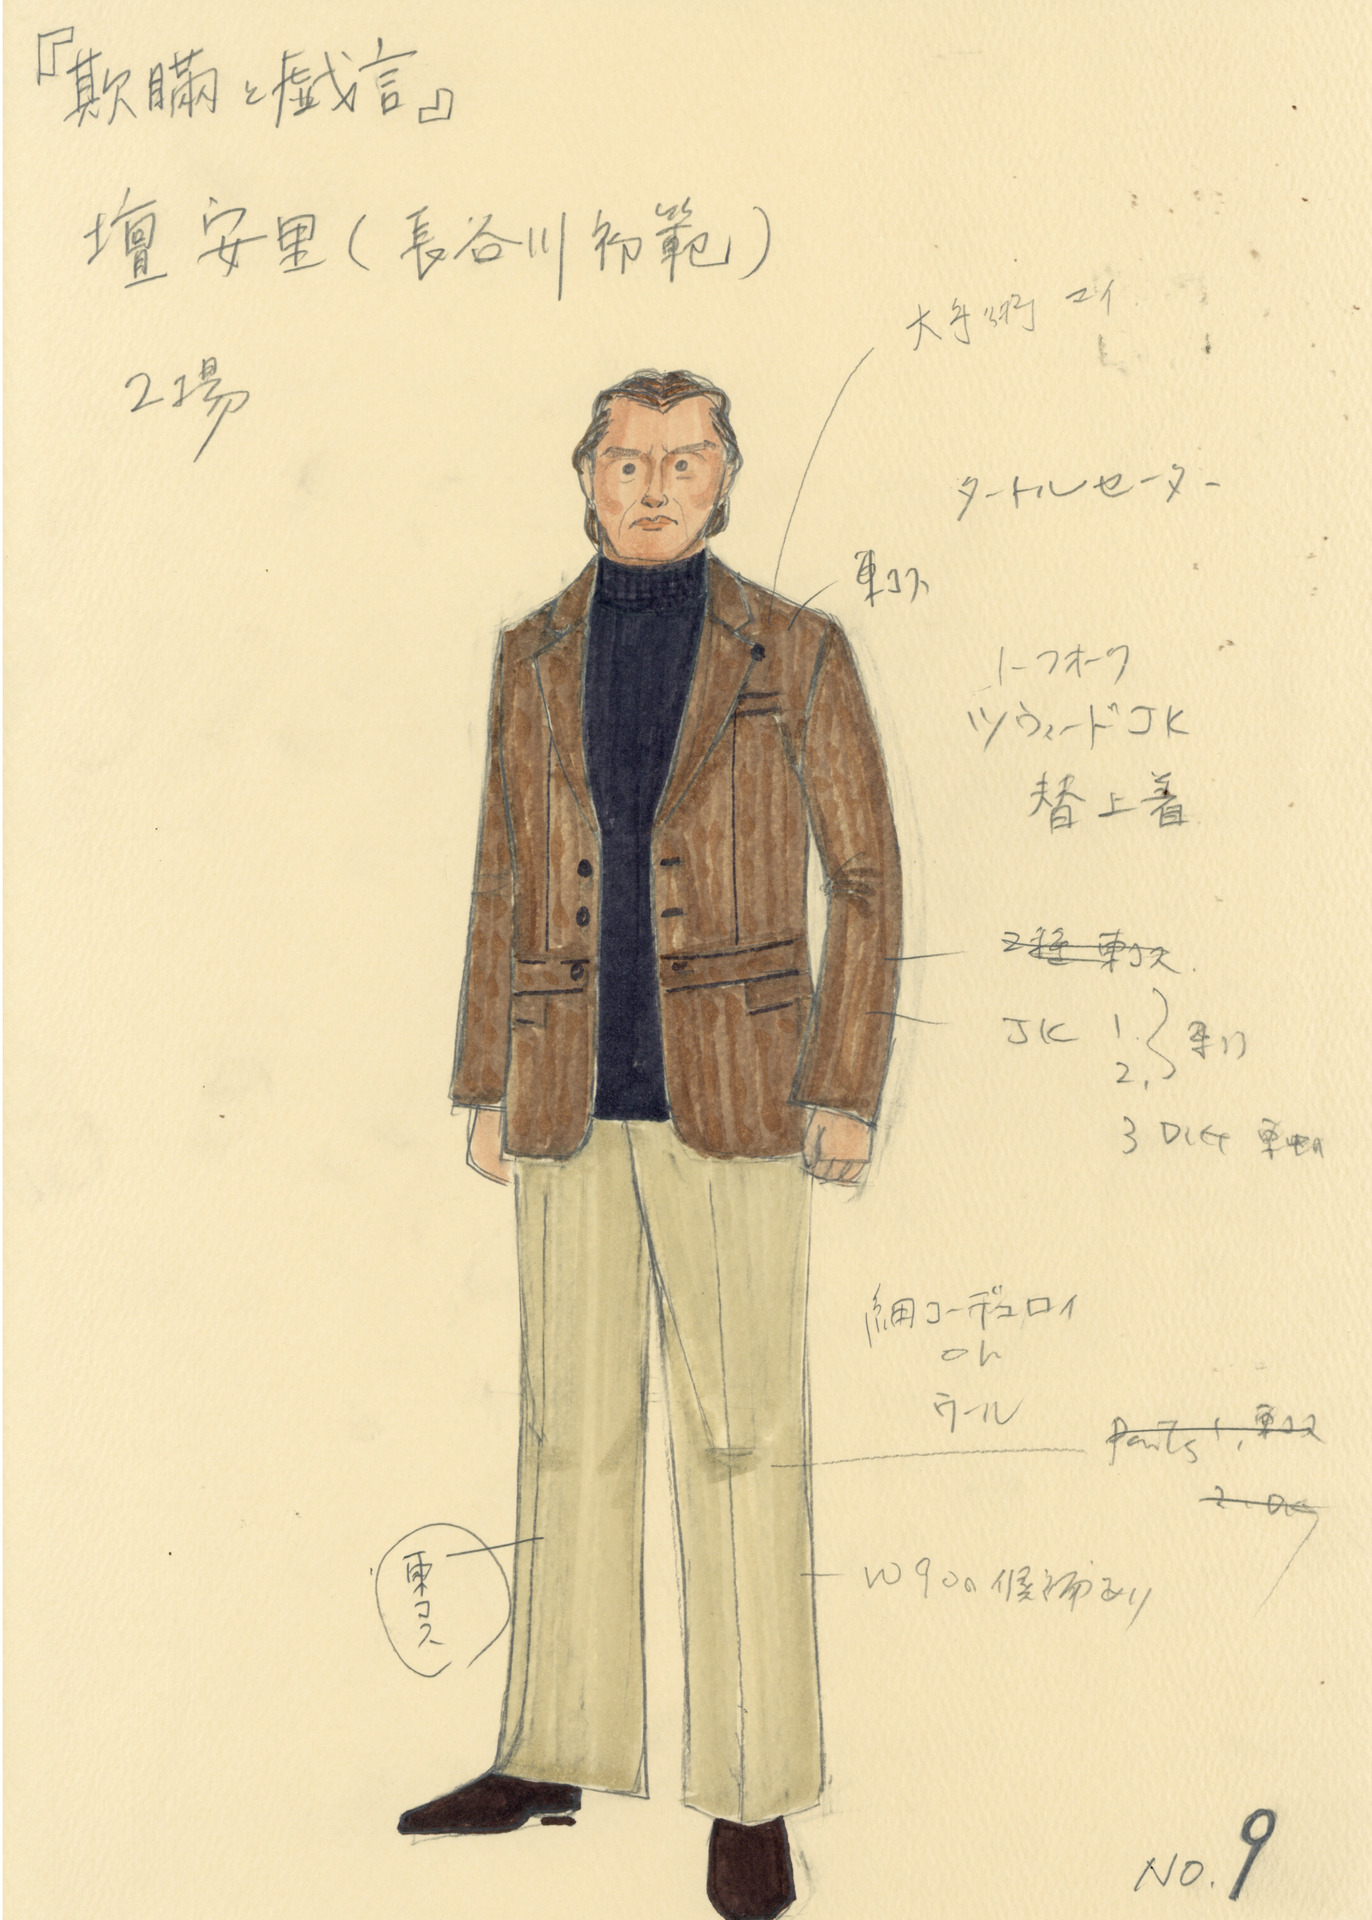 『欺瞞と戯言』
壇 安里(長谷川初範)
2場
タートルセーター
東コス
ノーフォーク
ツウィードJK
替上着
2種 東コス
JK 1.
2.
3
細コーデュロイ
or
ウール
Pants 1. 東コス
2.
東コス
W90の候補あり
NO.9